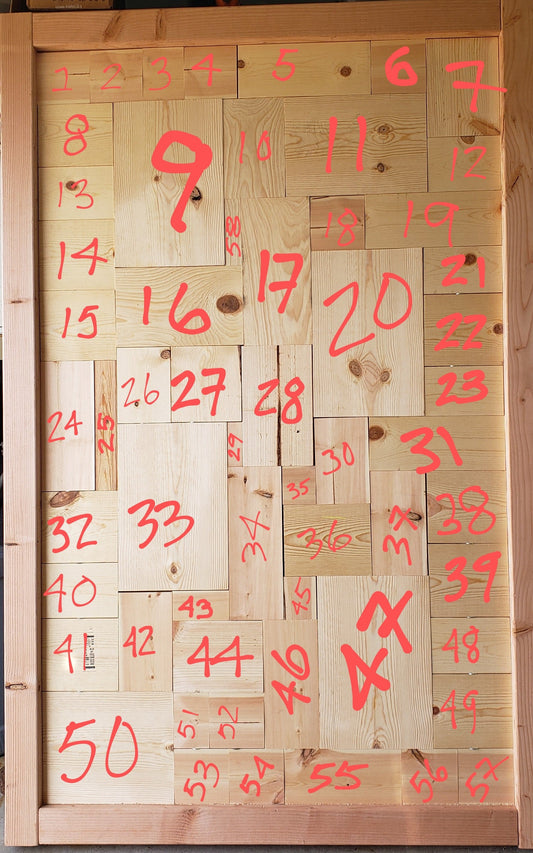 1 2 3 4 5 6 7
8 9 10 11 12
13 58 18 19
14 16 17 20 21
15 22
24 25 26 27 28 23
29 30 31
32 33 34 35 36 37 38
40 43 45 39
41 42 44 46 47 48
50 51 52 49
53 54 55 56 57